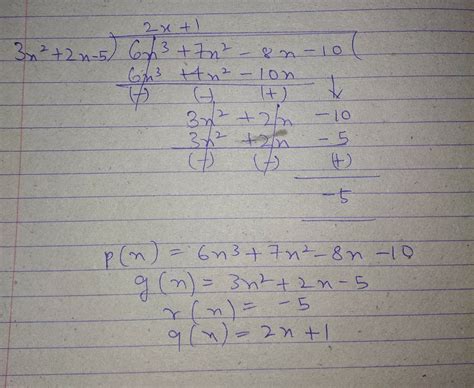 2x + 1
3x² + 2x - 5 ) 6x³ + 7x² - 8x - 10 (
6x³ + 4x² - 10x ↓
(-) (-) (+)
3x² + 2x - 10
3x² + 2x - 5
(-) (-) (+)
-5
p(x) = 6x³ + 7x² - 8x - 10
g(x) = 3x² + 2x - 5
r(x) = -5
q(x) = 2x + 1